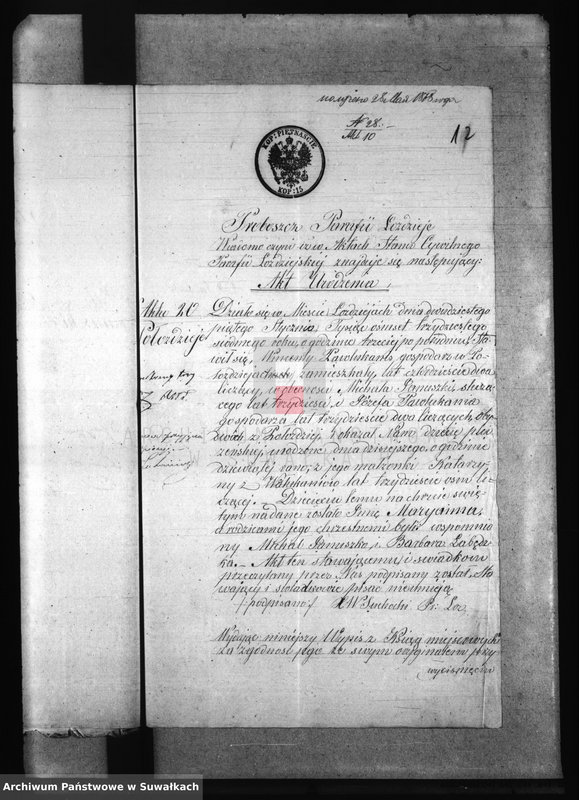 28 Maja 1873 roku
N 28.
Akt 10
12
KOP: PIĘTNAŚCIE
KOP: 15
Proboszcz Parafii Łozdzieje
Wiadomo czyni iż w Aktach Stanu Cywilnego
Parafii Łozdziejskiej znajduje się następujący:
Akt Urodzenia
Działo się w Mieście Łozdziejach dnia dwudziestego
piątego Stycznia, Tysiąc ośmset trzydziestego
siódmego roku, o godzinie trzeciej po południu, Sta-
wił się, Wincenty gospodarz w
zamieszkały, lat czterdzieści dwa
liczący, w obecności Michała
lat trzydzieści i Józefa
gospodarza lat trzydzieści dwa liczących
w i okazał Nam dziecię płci
żeńskiej, urodzone dnia dzisiejszego, o godzinie
dziewiątej rano, z jego małżonki Katarzy-
ny z lat trzydzieści ośm li-
czącej. Dziecięciu temu na chrzcie świę-
tym nadane zostało Imię Maryanna,
a rodzicami jego chrzestnemi byli wspomnio-
ny Michał i Barbara Łabędz-
ka. Akt ten stawającemu i świadkom
przeczytany przez Nas podpisany został, Sta-
wający i świadkowie pisać nieumieją
/podpisano/ X W Suchocki Pr. Łoz.
Wydając niniejszy Wypis z Ksiąg miejscowych
za zgodność jego ze swym oryginałem przy
wyciśnięciu
Archiwum Państwowe w Suwałkach